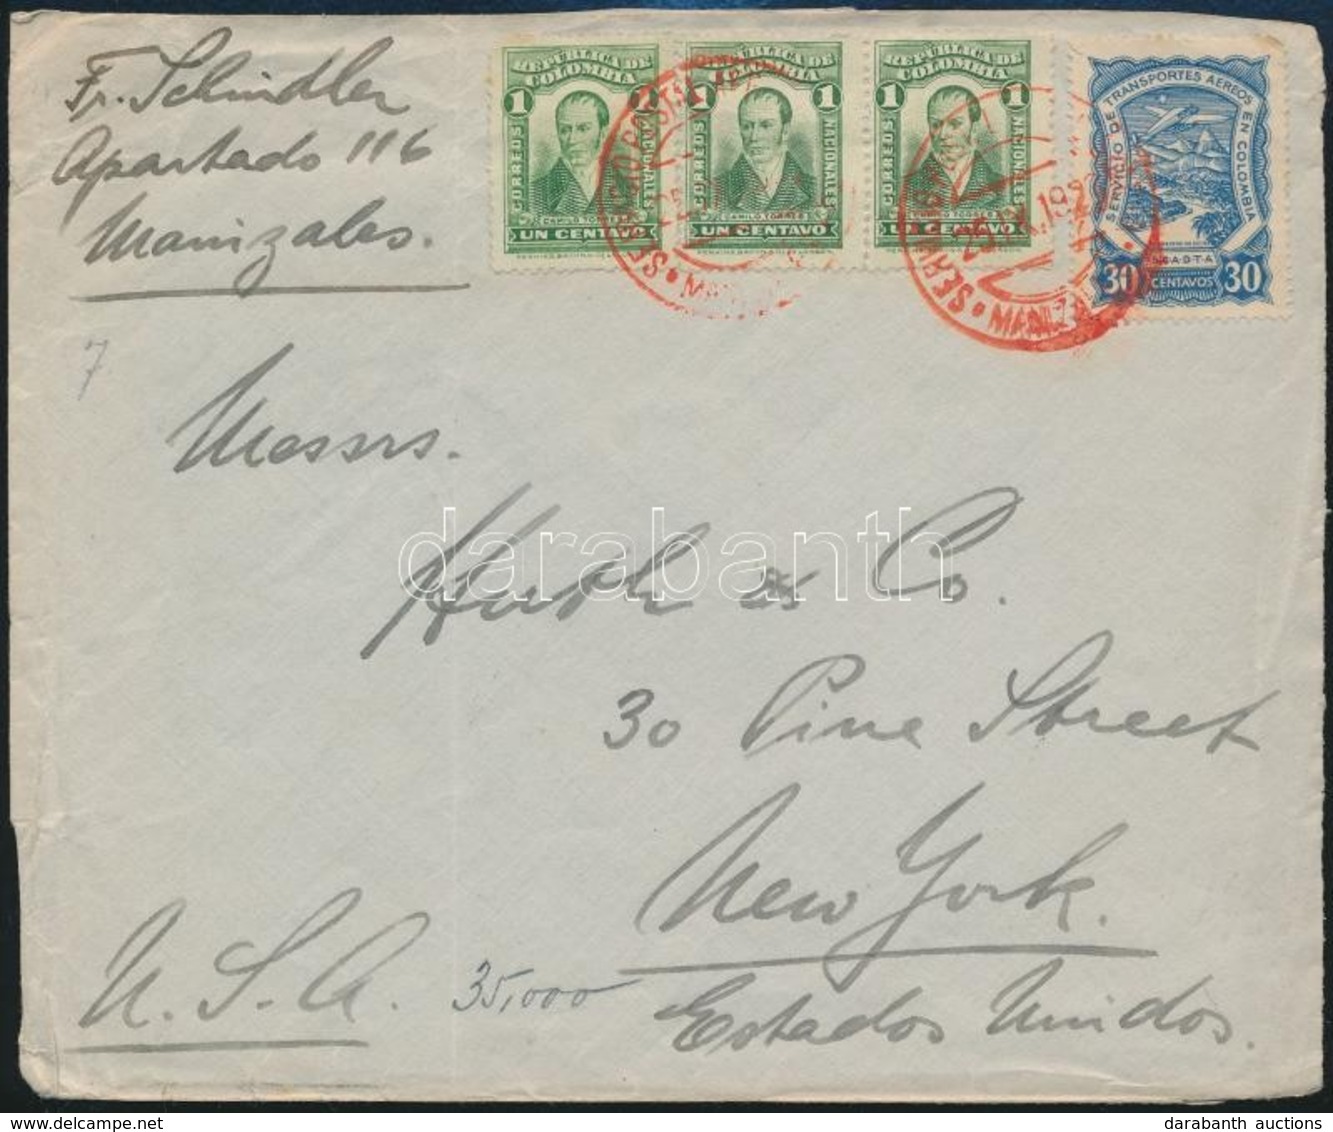 Fr. Schindler
Apartado 116
Manizales.
REPÚBLICA DE COLOMBIA
1 1
CORREOS NACIONALES
CAMILO TORRES
UN CENTAVO
REPÚBLICA DE COLOMBIA
1 1
CORREOS NACIONALES
CAMILO TORRES
UN CENTAVO
REPÚBLICA DE COLOMBIA
1 1
CORREOS NACIONALES
CAMILO TORRES
UN CENTAVO
SERVICIO DE TRANSPORTES AEREOS EN COLOMBIA
SCADTA
30 CENTAVOS 30
7
Messrs.
Huth & Co.
darabanth
30 Pine Street
New York.
U. S. A. 35,000
Estados Unidos.
darabanth auctions